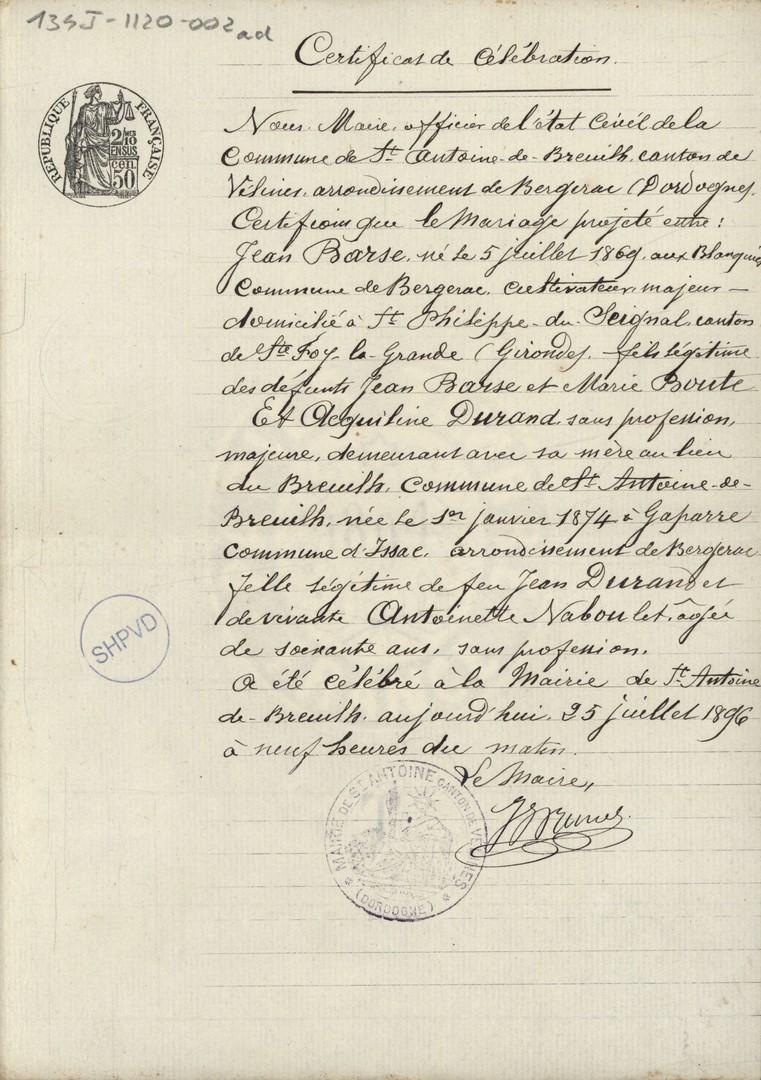 134J-1120-002
ad
Certificat de célébration.
RÉPUBLIQUE FRANÇAISE
2/10
EN SUS
50 cen
Nous, Maire, officier de l'état Civil de la
Commune de St Antoine-de-Breuilh, canton de
Vélines, arrondissement de Bergerac (Dordogne),
Certifions que le Mariage projeté entre:
Jean Barse, né le 5 juillet 1869, aux
Commune de Bergerac, cultivateur, majeur –
domicilié à St Philippe-du-Seignal, canton
de Ste Foy-la-Grande (Gironde), fils légitime
des défunts Jean Barse et Marie Boute
Et Acquiline Durand, sans profession,
majeure, demeurant avec sa mère au lieu
du Breuilh, Commune de St Antoine-de-
Breuilh, née le 1er janvier 1874 à Gaparre
Commune d'Issac, arrondissement de Bergerac
fille légitime de feu Jean Durand et
de vivante Antoinette Naboulet, âgée
de soixante ans, sans profession,
a été célébré à la Mairie de St Antoine
de-Breuilh, aujourd'hui, 25 juillet 1896
à neuf heures du matin.
Le Maire,
SHPVD
MAIRIE DE ST ANTOINE CANTON DE VELINES
(DORDOGNE)